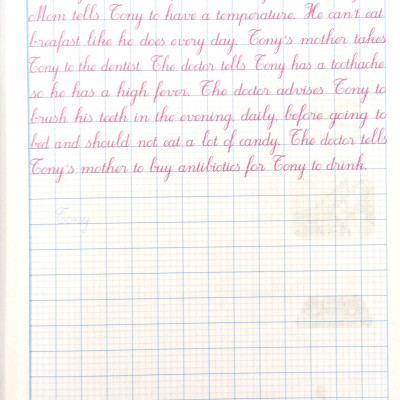 Mom tells Tony to have a temperature. He can't eat
breafast like he does every day. Tony's mother takes
Tony to the dentist. The doctor tells Tony has a toothache
so he has a high fever. The doctor advises Tony to
brush his teeth in the evening, daily, before going to
bed and should not eat a lot of candy. The doctor tells
Tony's mother to buy antibiotics for Tony to drink.
Tony